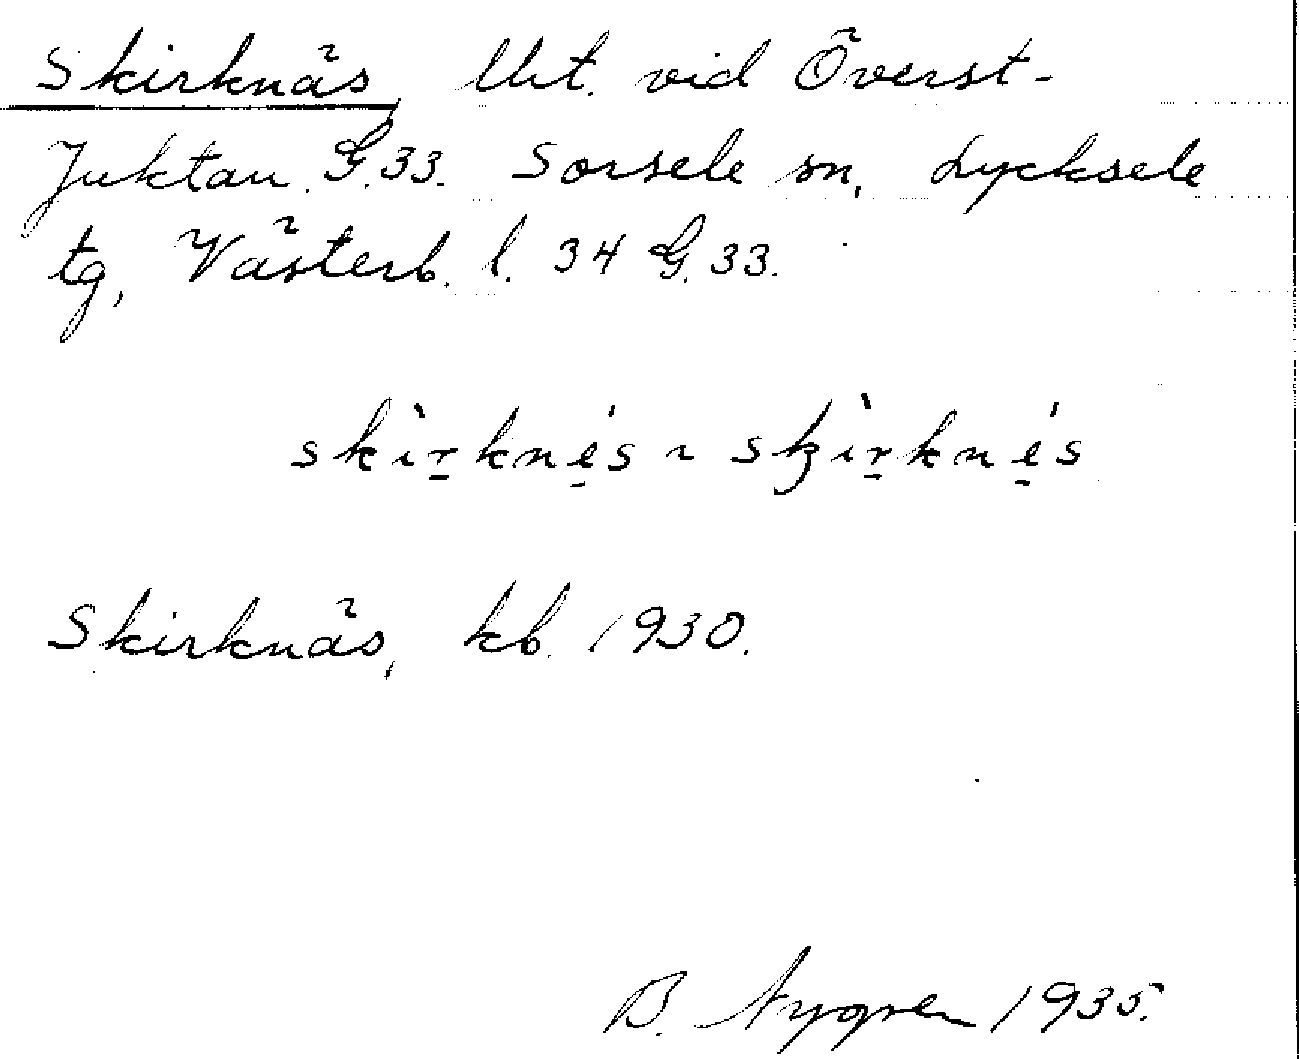 Skirknäs, Ut. vid Överst-
Juktan. G.33. Sorsele sn, Lycksele
tg, Västerb. l. 34 G. 33.
skìr̠kne̠ʹs ~ skʒìr̠kne̠ʹs
Skirknäs, kb. 1930.
B. Nygren 1935.